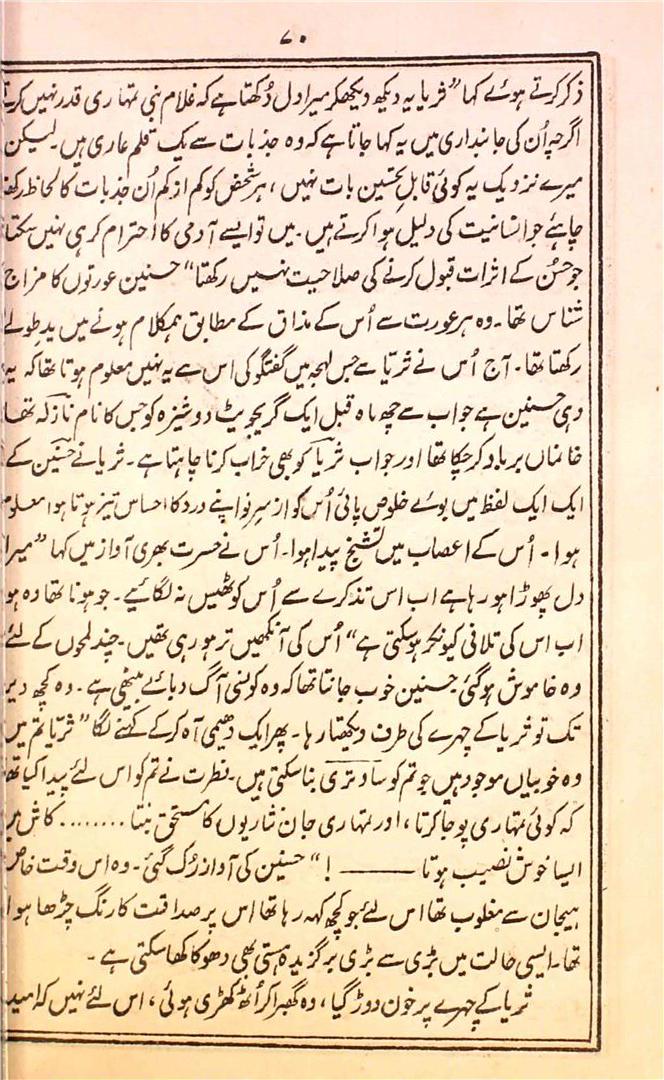 ۷۰
ذکر کرتے ہوئے کہا ”ثریا یہ دیکھ دیکھکر میرا دل دُکھتا ہے کہ غلام نبی تمہاری قدر نہیں کرتے
اگرچہ اُن کی جانبداری میں یہ کہا جاتا ہے کہ وہ جذبات سے یک قلم عاری ہیں۔ لیکن
میرے نزدیک یہ کوئی قابلِ تحسین بات نہیں، ہر شخص کو کم از کم اُن جذبات کا لحاظ رکھنا
چاہئے جو انسانیت کی دلیل ہوا کرتے ہیں۔ میں تو ایسے آدمی کا احترام کر ہی نہیں سکتا
جو حُسن کے اثرات قبول کرنے کی صلاحیت نہیں رکھتا“ حسنین عورتوں کا مزاج
شناس تھا۔ وہ ہر عورت سے اُس کے مذاق کے مطابق ہمکلام ہونے میں یدِ طولےٰ
رکھتا تھا۔ آج اُس نے ثریا سے جس لہجہ میں گفتگو کی اس سے یہ نہیں معلوم ہوتا تھا کہ یہ
وہی حسنین ہے جو اب سے چھ ماہ قبل ایک گریجویٹ دوشیزہ کو جس کا نام نازکہ تھا
خانماں برباد کر چکا تھا اور جو اب ثریا کو بھی خراب کرنا چاہتا ہے۔ ثریا نے حسنین کے
ایک ایک لفظ میں بوئے خلوص پائی اُس کو از سرِ نو اپنے درد کا احساس تیز ہوتا ہوا معلوم
ہوا۔ اُس کے اعصاب میں تشنج پیدا ہوا۔ اُس نے حسرت بھری آواز میں کہا ”میرا
دل پھوڑا ہو رہا ہے اب اس تذکرے سے اُس کو ٹھیس نہ لگائیے۔ جو ہونا تھا وہ ہو
اب اس کی تلافی کیونکر ہو سکتی ہے“ اُس کی آنکھیں تر ہو رہی تھیں۔ چند لمحوں کے لئے
وہ خاموش ہو گئی حسنین خوب جانتا تھا کہ وہ کونسی آگ دبائے بیٹھی ہے۔ وہ کچھ دیر
تک تو ثریا کے چہرے کی طرف دیکھتا رہا۔ پھر ایک دھیمی آہ کر کے کہنے لگا ”ثریا تم میں
وہ خوبیاں موجود ہیں جو تم کو ساوتری بنا سکتی ہیں۔ فطرت نے تم کو اس لئے پیدا کیا تھا
کہ کوئی تمہاری پوجا کرتا، اور تمہاری جان نثاریوں کا مستحق بنتا ........ کاش میں
ایسا خوش نصیب ہوتا ——— !“ حسنین کی آواز رُک گئی۔ وہ اس وقت خاص
ہیجان سے مغلوب تھا اس لئے جو کچھ کہہ رہا تھا اس پر صداقت کا رنگ چڑھا ہوا
تھا۔ ایسی حالت میں بڑی سے بڑی برگزیدہ ہستی بھی دھوکا کھا سکتی ہے۔
ثریا کے چہرے پر خون دوڑ گیا، وہ گھبرا کر اُٹھ کھڑی ہوئی، اس لئے نہیں کہ امید